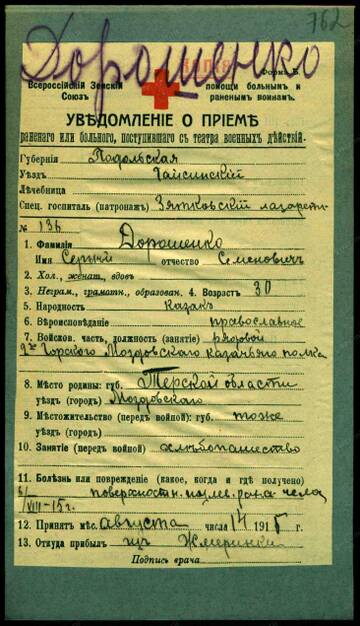 762
Дорошенко
КОПІЯ
Форма Б.
Всероссійскій Земскій Союзъ
помощи больнымъ и раненымъ воинамъ.
УВѢДОМЛЕНІЕ О ПРІЕМѢ
раненаго или больного, поступившаго съ театра военныхъ дѣйствій.
Губернія Подольская
Уѣздъ Гайсинскій
Лѣчебница
Спец. госпиталь (патронажъ) Зятковскій лазаретъ
№ 136
1. Фамилія Дорошенко
Имя Сергій отчество Семеновичъ
2. Хол., женат., вдовъ
3. Неграм., грамотн., образован. 4. Возрастъ 30
5. Народность казакъ
6. Вѣроисповѣданіе православное
7. Войсков. часть, должность (занятіе) рядовой
Горского Моздовского казачьяго полка
8. Мѣсто родины: губ. Терской области
уѣздъ (городъ) Моздовского
9. Мѣстожительство (передъ войной): губ. тоже
уѣздъ (городъ)
10. Занятіе (передъ войной) хлѣбопашество
11. Болѣзнь или поврежденіе (какое, когда и гдѣ получено)
поверхностн. пул. рана чела
VIII-15 г.
12. Принятъ мѣс. августа числа 14 1915 г.
13. Откуда прибылъ изъ Жмеринки
Подпись врача